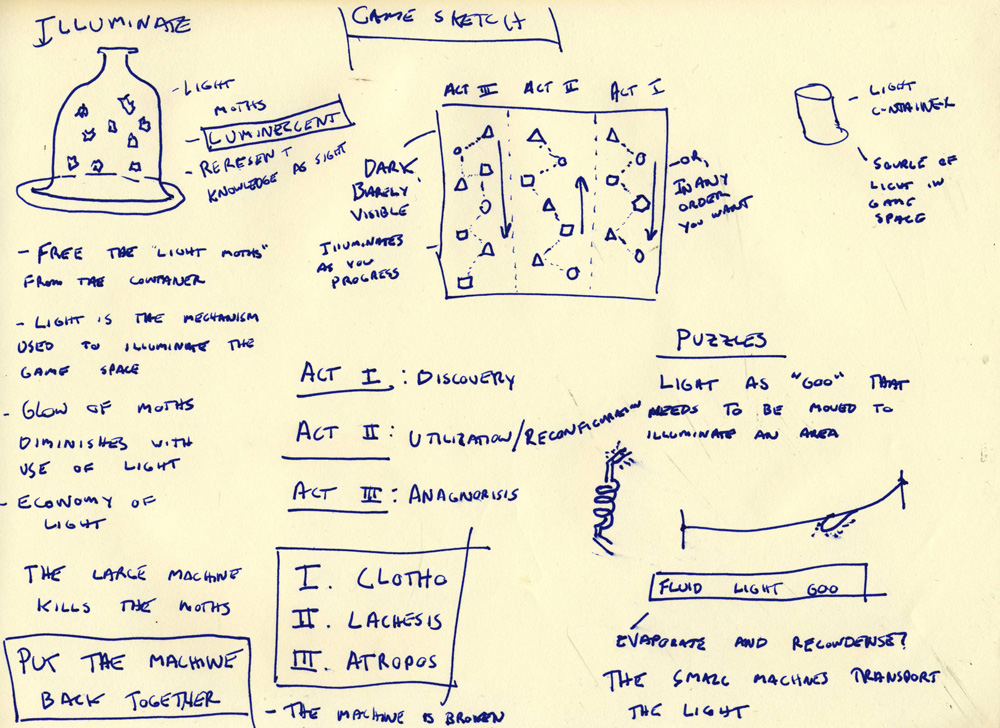 ILLUMINATE
GAME SKETCH
- LIGHT
MOTHS
- LUMINESCENT
- REPRESENT
KNOWLEDGE AS SIGHT
- FREE THE "LIGHT MOTHS"
FROM THE CONTAINER
- LIGHT IS THE MECHANISM
USED TO ILLUMINATE THE
GAME SPACE
- GLOW OF MOTHS
DIMINISHES WITH
USE OF LIGHT
- ECONOMY OF
LIGHT
THE LARGE MACHINE
KILLS THE MOTHS
PUT THE MACHINE
BACK TOGETHER
ACT III ACT II ACT I
DARK,
BARELY
VISIBLE
ILLUMINATES
AS YOU
PROGRESS
- OR,
IN ANY
ORDER
YOU WANT
- LIGHT
CONTAINER
SOURCE OF
LIGHT IN
GAME
SPACE
ACT I : DISCOVERY
ACT II : UTILIZATION/RECONFIGURATION
ACT III : ANAGNORISIS
I. CLOTHO
II. LACHESIS
III. ATROPOS
- THE MACHINE IS BROKEN
PUZZLES
LIGHT AS "GOO" THAT
NEEDS TO BE MOVED TO
ILLUMINATE AN AREA
FLUID LIGHT GOO
EVAPORATE AND RECONDENSE?
THE SMALL MACHINES TRANSPORT
THE LIGHT